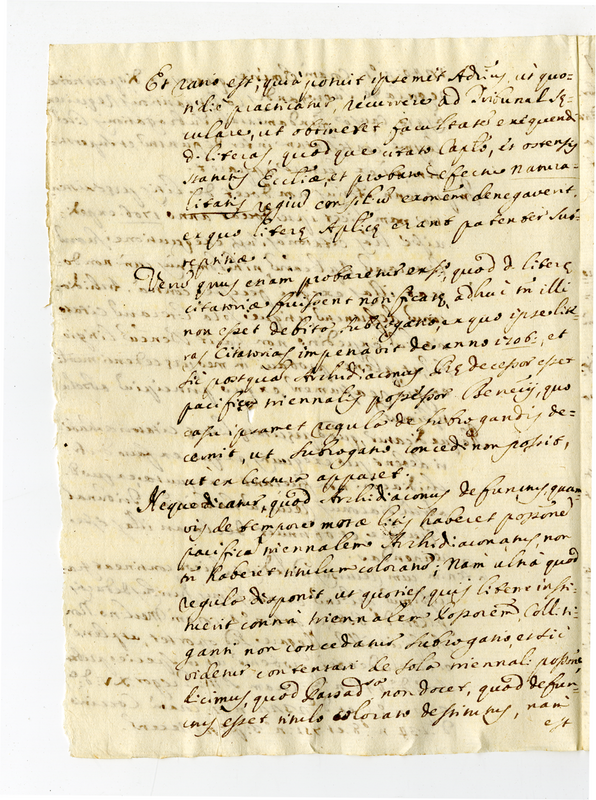 Et ratio est, quia potuit ipsemet Adrius, ut quo-
tidie practicatur, recurrere ad Tribunal Se-
culare, ut obtineret facultate exequendi
d. literas, quodque citato Carlo, et ostensis
statutis Ecclie, et probato defectu Natura-
litatis regiu consiliu exonem denegaverit,
ex quo litere Aplice erant patenter sub-
reptitiæ.
Vero quis etiam probaretur ensi, quod d. litere
citatoriæ fuissent notificate, adhuc tn illi
non esset debita subrogatio, ex quo ipse lite-
ras Citatorias impetravit de anno 1706, et
sic postqua Archidiaconus predecessor esset
pacificus triennalis possessor Beneficij, quo
casu ipsamet regula de subrogandis de-
cernit, ut subrogatio concedi non possit,
ut ex lectura apparet.
Neque dicatur, quod Archidiaconus defunctus, quam-
vis de tempore motæ litis haberet possone
pacifica triennalem Archidiaconatus non
tn haberet titulum coloratu; Nam ultra quod
regula disponit, ut quoties quis litem insti-
tuerit contra triennalem Possorem, Collitti-
ganti non concedatur subrogatio, et sic
videtur contentari de sola triennali possone,
dicimus, quod non docet, quod defun-
ctus esset titulo colorato destitutus, nam
est